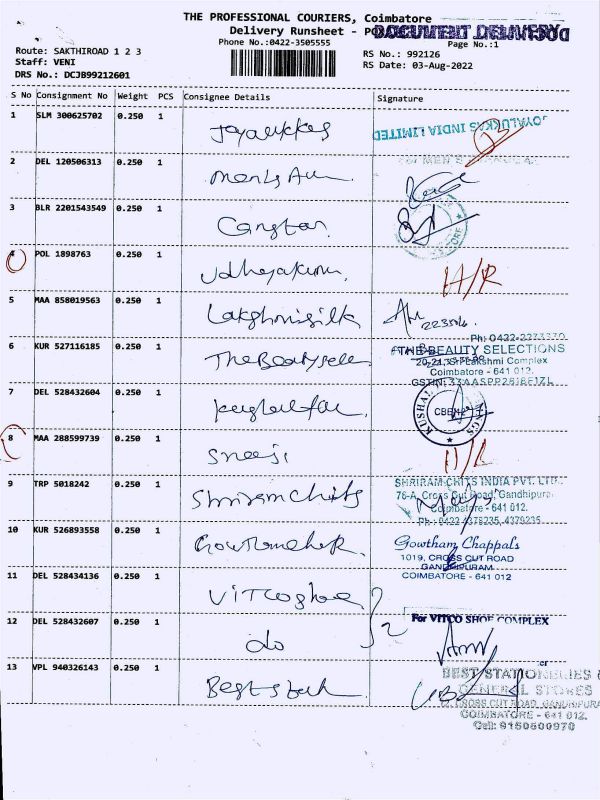 THE PROFESSIONAL COURIERS, Coimbatore
Delivery Runsheet - 
DOCUMENT DELIVERY
Phone No.:0422-3505555
Page No.:1
Route: SAKTHIROAD 1 2 3
RS No.: 992126
Staff: VENI
RS Date: 03-Aug-2022
DRS No.: DCJB99212601
S No Consignment No Weight PCS Consignee Details Signature
1 SLM 300625702 0.250 1 Joyalukkas
JOYALUKKAS INDIA LIMITED
2 DEL 120506313 0.250 1
3 BLR 2201543549 0.250 1
4 POL 1898763 0.250 1 Udhayakumar
5 MAA 858019563 0.250 1 Lakshmisilk
6 KUR 527116185 0.250 1 The Beauty sele
Ph: 0422-2273370
THE BEAUTY SELECTIONS
Lakshmi Complex
Coimbatore - 641 012.
7 DEL 528432604 0.250 1
KUSHAL
CBE-12
8 MAA 288599739 0.250 1 Sneeji
9 TRP 5018242 0.250 1 Shriram chits
SHRIRAM CHITS INDIA PVT. LTD.
76-A, Cross Cut Road, Gandhipura
Coimbatore - 641 012.
Ph: 0422 4378235, 4379235
10 KUR 526893558 0.250 1
Gowtham Chappals
1019, CROSS CUT ROAD
GANDHIPURAM
COIMBATORE - 641 012
11 DEL 528434136 0.250 1 Vitco shoe
2
For VITCO SHOE COMPLEX
12 DEL 528432607 0.250 1 do
13 VPL 940326143 0.250 1
BEST STATIONERIES &
GENERAL STORES
CROSS CUT ROAD, GANDHIPURA
COIMBATORE - 641 012.
Cell: 9150600970